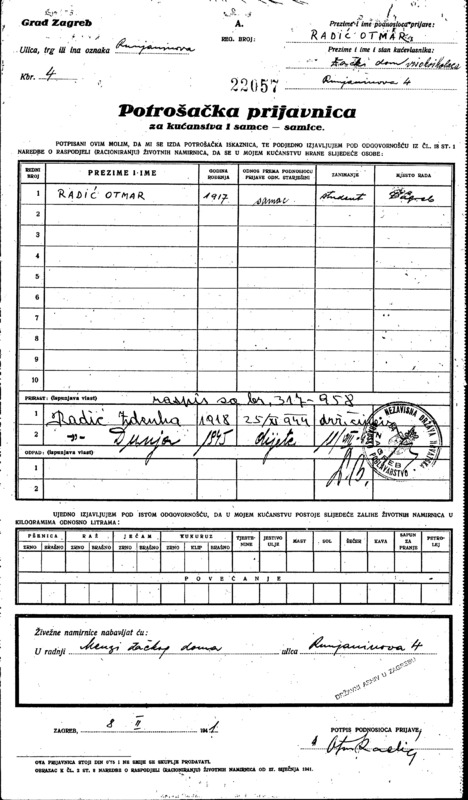 Grad Zagreb
Ulica, trg ili ina oznaka Runjaninova
Kbr. 4
A.
REG. BROJ:
22057
Prezime i ime podnosioca prijave:
RADIĆ OTMAR
Prezime i ime i stan kućevlasnika:
Runjaninova 4
Potrošačka prijavnica
za kućanstva i samce – samice.
POTPISANI OVIM MOLIM, DA MI SE IZDA POTROŠAČKA ISKAZNICA, TE PODJEDNO IZJAVLJUJEM POD ODGOVORNOŠĆU IZ ČL. 18 ST. 1
NAREDBE O RASPODJELI (RACIONIRANJU) ŽIVOTNIH NAMIRNICA, DA SE U MOJEM KUĆANSTVU HRANE SLIJEDEĆE OSOBE:
REDNI BROJ PREZIME I IME GODINA ROĐENJA ODNOS PREMA PODNOSIOCU PRIJAVE ODN. STARJEŠINI ZANIMANJE MJESTO RADA
1 RADIĆ OTMAR 1917 samac student Zagreb
2
3
4
5
6
7
8
9
10
PRIRAST: (ispunjava vlast) raspis sa br. 317-958
1 Radić Zdenka 1918 25/XI 944
2 -"- Dunja 1945 dijete
NEZAVISNA DRŽAVA HRVATSKA
POGLAVARSTVO
ZAGREB
OTPAD: (ispunjava vlast)
1
2
UJEDNO IZJAVLJUJEM POD ISTOM ODGOVORNOŠĆU, DA U MOJEM KUĆANSTVU POSTOJE SLIJEDEĆE ZALIHE ŽIVOTNIH NAMIRNICA U
KILOGRAMIMA ODNOSNO LITRAMA:
PŠENICA RAŽ JEČAM KUKURUZ TJESTENINE JESTIVO ULJE MAST SOL ŠEĆER KAVA SAPUN ZA PRANJE PETROLEJ
ZRNO BRAŠNO ZRNO BRAŠNO ZRNO BRAŠNO ZRNO KLIP BRAŠNO
POVEĆANJE
Živežne namirnice nabavljat ću:
U radnji Menzi đačkog doma ulica Runjaninova 4
DRŽAVNI ARHIV U ZAGREBU
ZAGREB, 8 II 1941
POTPIS PODNOSIOCA PRIJAVE:
Otmar Radić
OVA PRIJAVNICA STOJI DIN 0'75 I NE SMIJE SE SKUPLJE PRODAVATI.
OBRAZAC K ČL. 2 ST. 2 NAREDBE O RASPODJELI (RACIONIRANJU) ŽIVOTNIH NAMIRNICA OD 27. SIJEČNJA 1941.